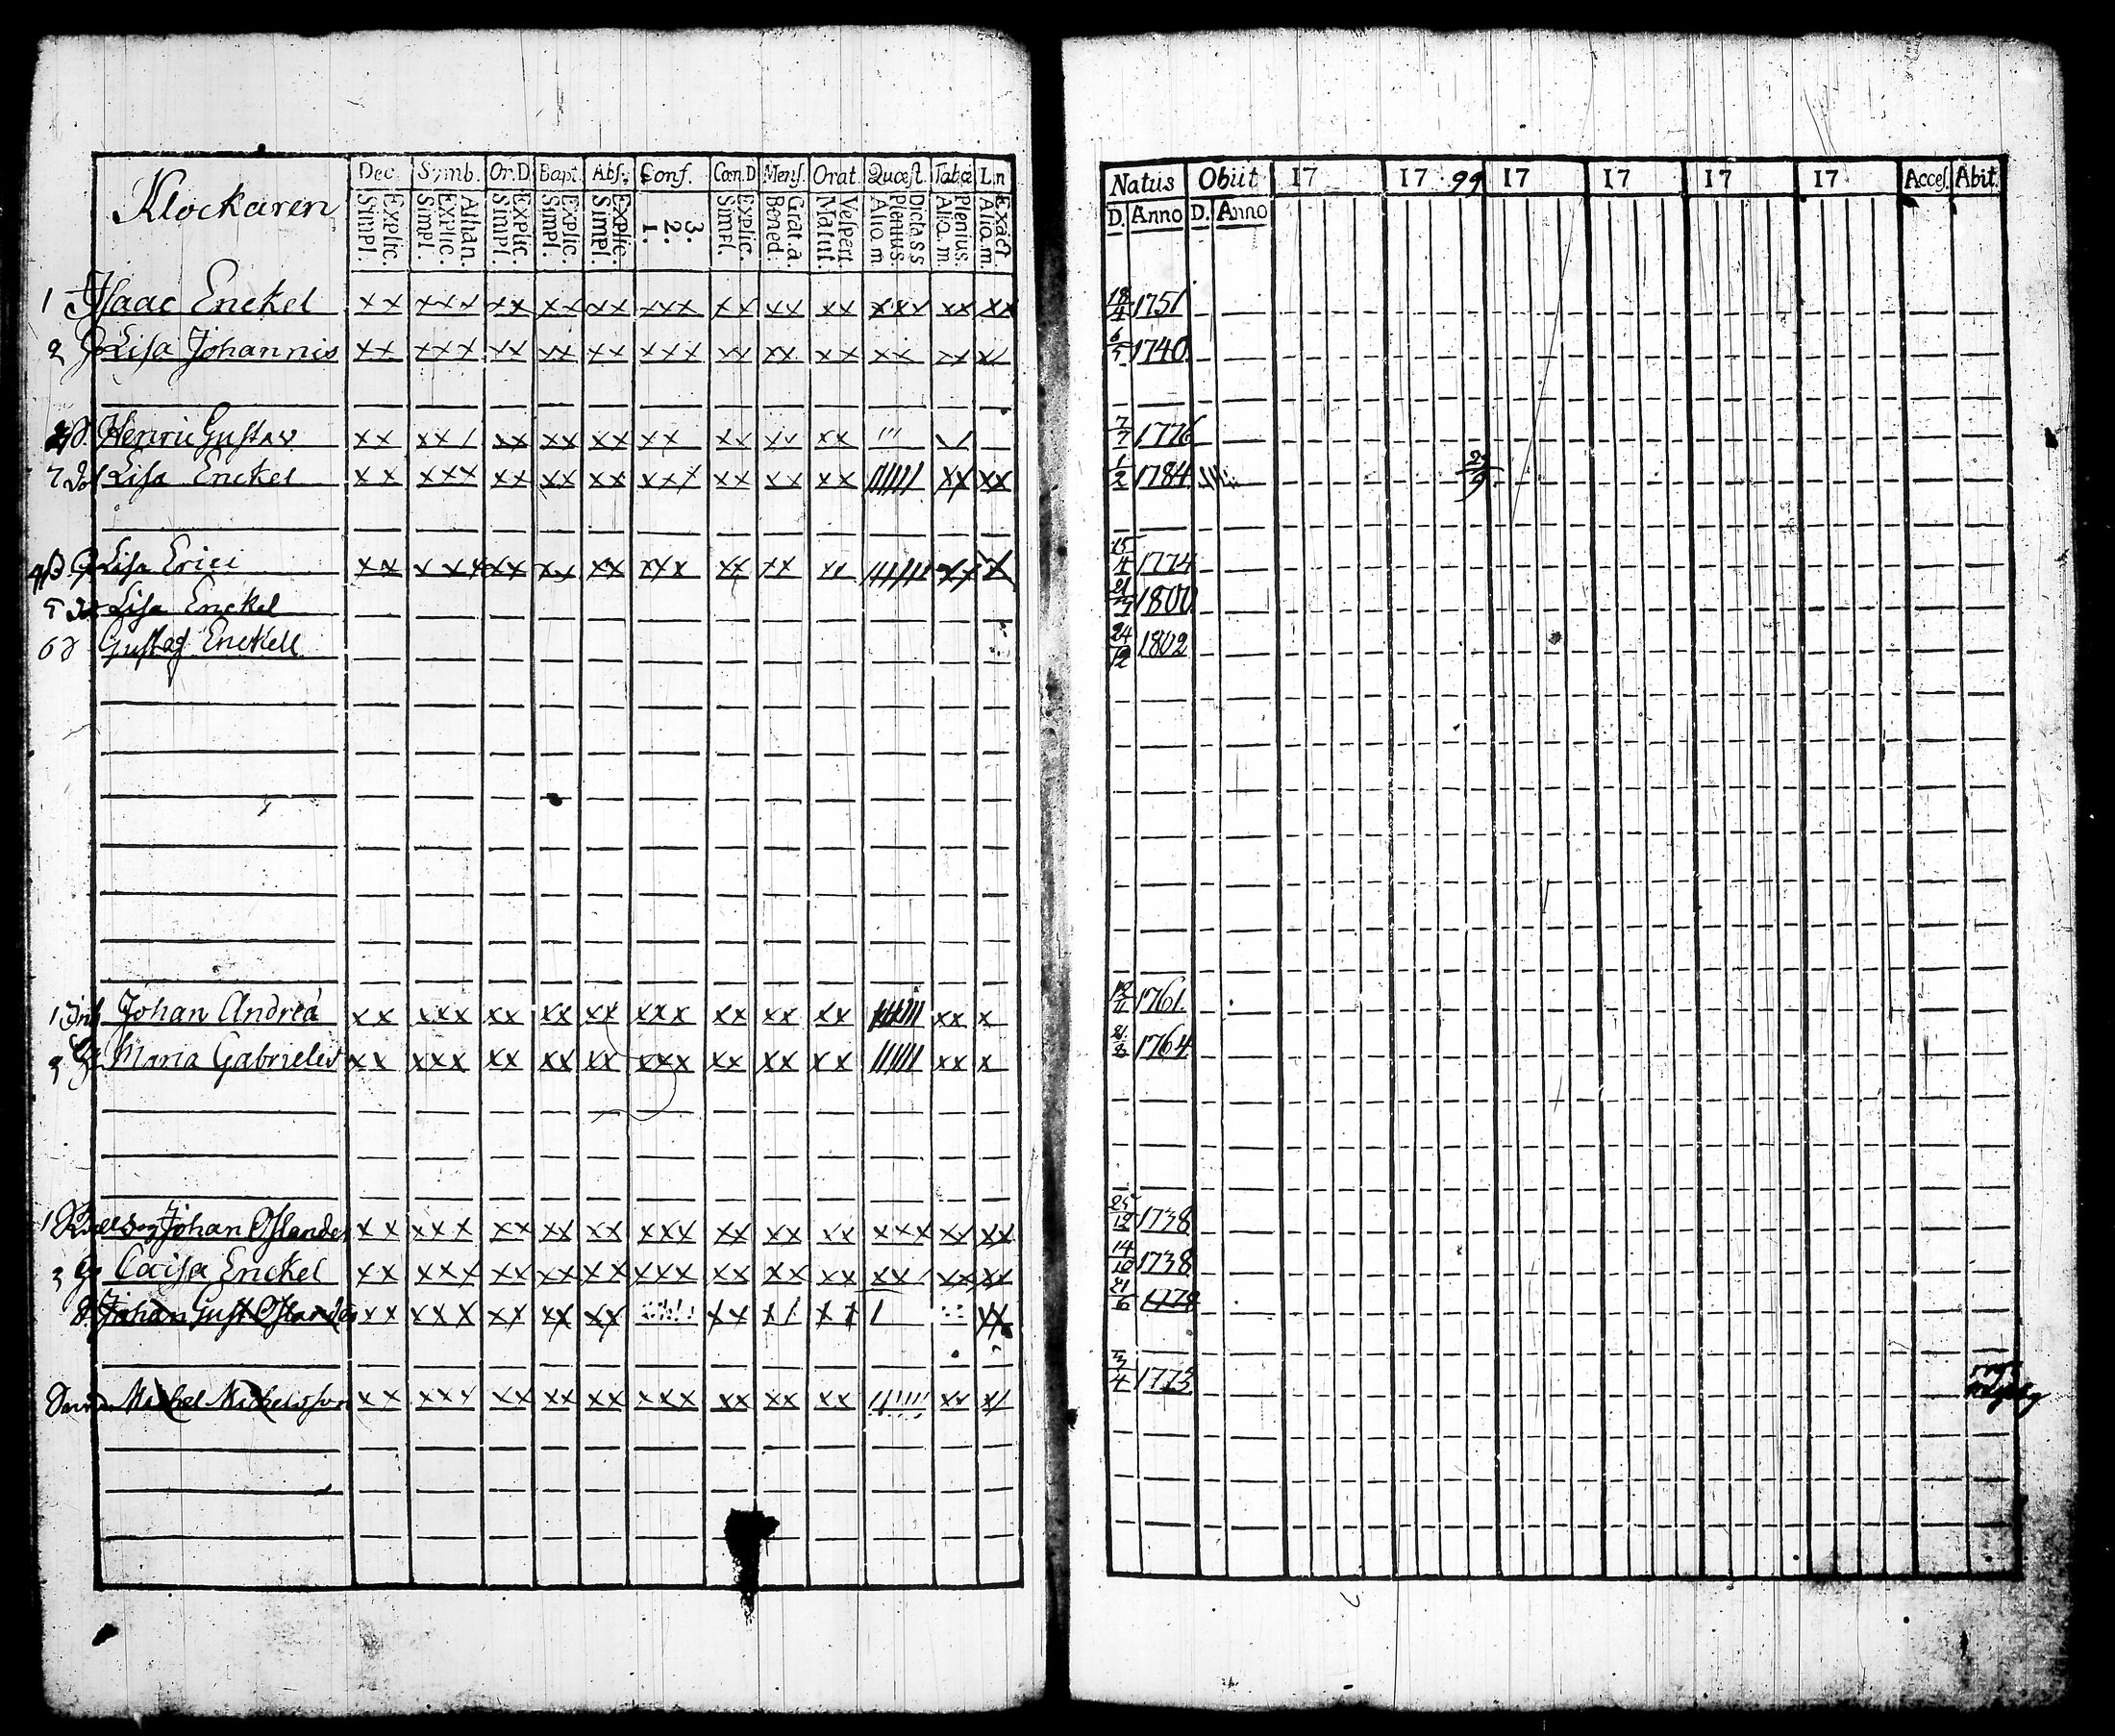 Klockaren Dec. Symb. Or.D. Bapt. Abs. Conf. Com.D. Mens. Orat. Quæst. Tabæ Natus Obiit 17 17 99 17 17 17 17 Acces. Abit.
Simpl. Explic. Simpl. Explic. Athan. Simpl. Explic. Simpl. Explic. Simpl. Explic. 1. 2. 3. Simpl. Explic. Bened. Grat. a. Matut. Vespert. Alio. m. Plenius. Dicta SS Alio. m. Plenius. Alio. m. Exact D. Anno D. Anno
1 Isaac Enckel xx xxx xx xx xx xxx xx xx xx xxx xx xx 18/4 1751
2 Lisa Johannis xx xxx xx xx xx xxx xx xx xx xx xx 6/5 1740
Henric Gustav xx xx/ xx xx xx xx xx xx ''' 7/7 1776
7 Lisa Enckel xx xxx xx xx xx xxx xx xx xx ////// xx xx 1/2 1784
Lisa Erici xx xx xx xx xxx xx xx 15/4 1774
5 Lisa Enckel 1800
6 Gustaf Enckell 24/12 1802
1 Inh Johan Andreæ xx xxx xx xx xx xxx xx xx xx xx x 1761.
Maria Gabrielis xx xxx xx xx xx xxx xx xx xx ////// xx x 1764
1 Johan Oflander xx xxx xx xx xx xxx xx xx xx xxx xx xx 25/12 1738
Caisa Enckel xx xxx xx xx xx xxx xx xx xx xx/ xx xx 14/10 1738
Johan Gust Oflander xx xxx xx xx xx xx x/ / xx 21/6 1778
Michel Michelsson xx xxx xx xx xx xxx xx xx xx xx x/ 3/4 1773